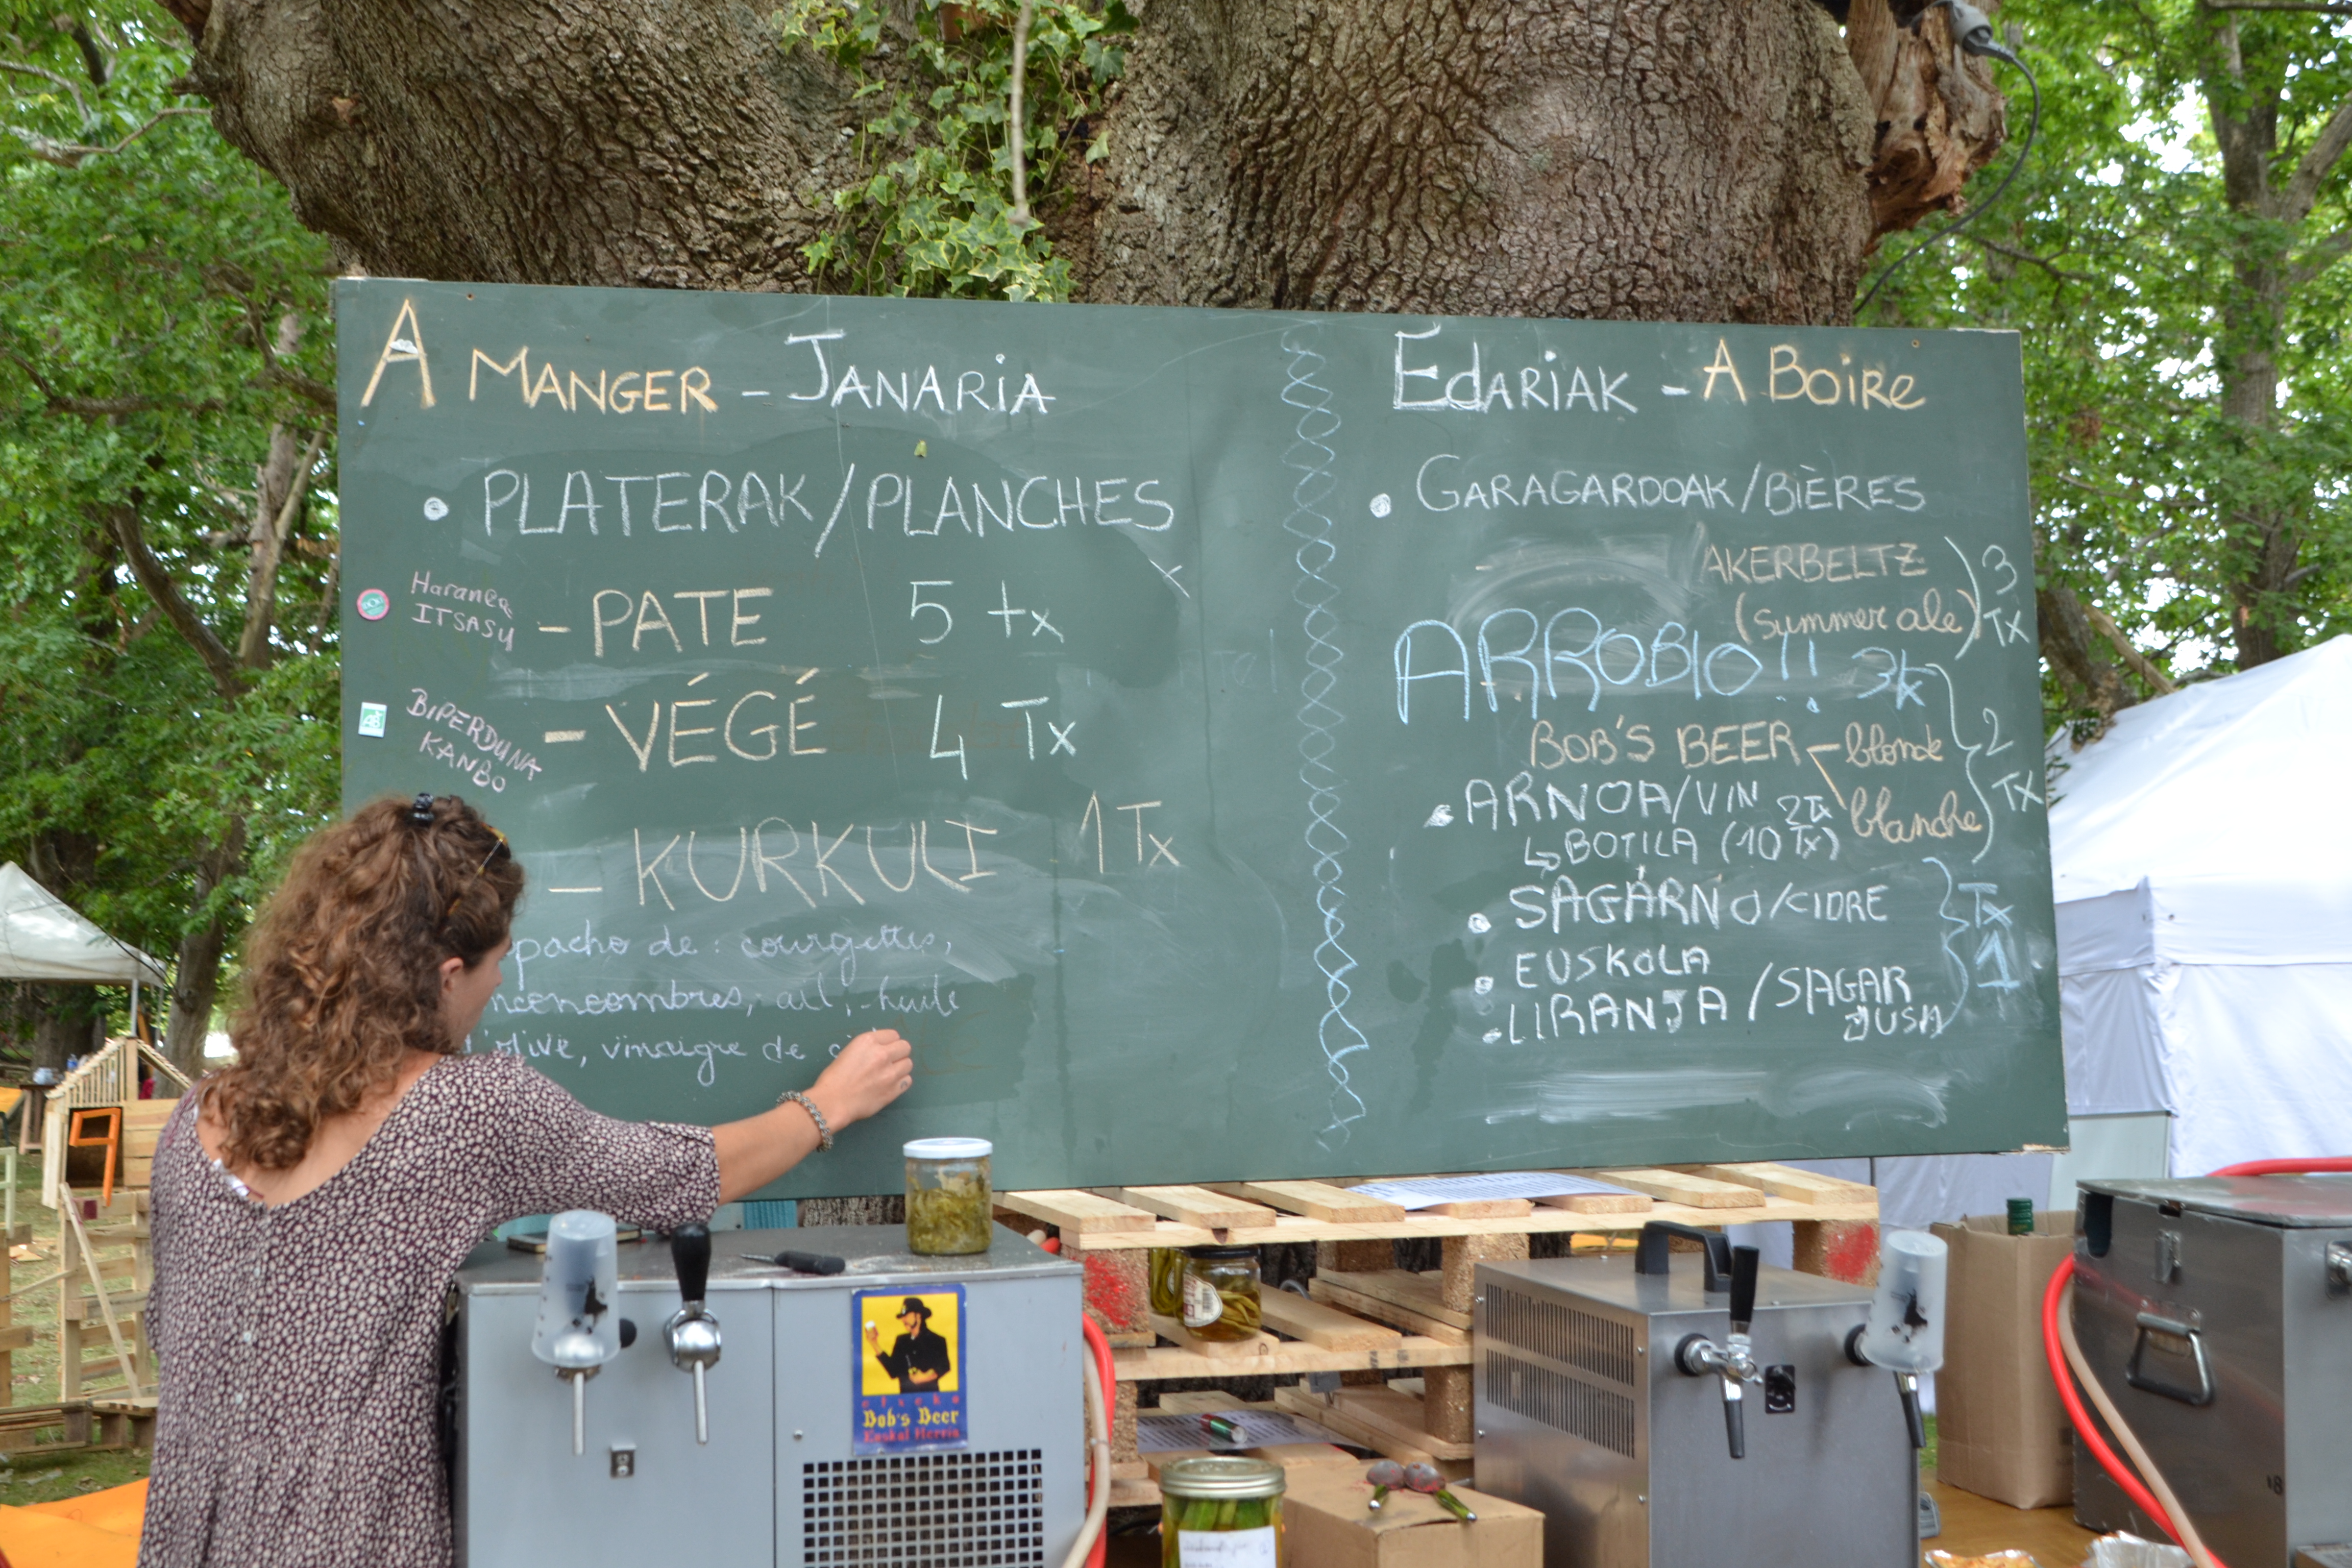 A MANGER - JANARIA
• PLATERAK/PLANCHES
Haranea
ITSASU
- PATE 5 tx
BIPERDUNA
KANBO
- VÉGÉ 4 Tx
- KURKULI 1 Tx
pacho de : courgettes,
concombres, ail, huile
olive, vinaigre de
EDARIAK - A BOIRE
• GARAGARDOAK/BIÈRES
AKERBELTZ
(summer ale)
3
Tx
ARROBIO!!
BOB'S BEER
blonde
blanche
2
Tx
• ARNOA/VIN 2Tx
↳ BOTILA (10 Tx)
• SAGARNO/CIDRE
• EUSKOLA
• LIRANJA / SAGAR
JUSA
Tx
1
AB
Bob's Beer
Euskal Herria